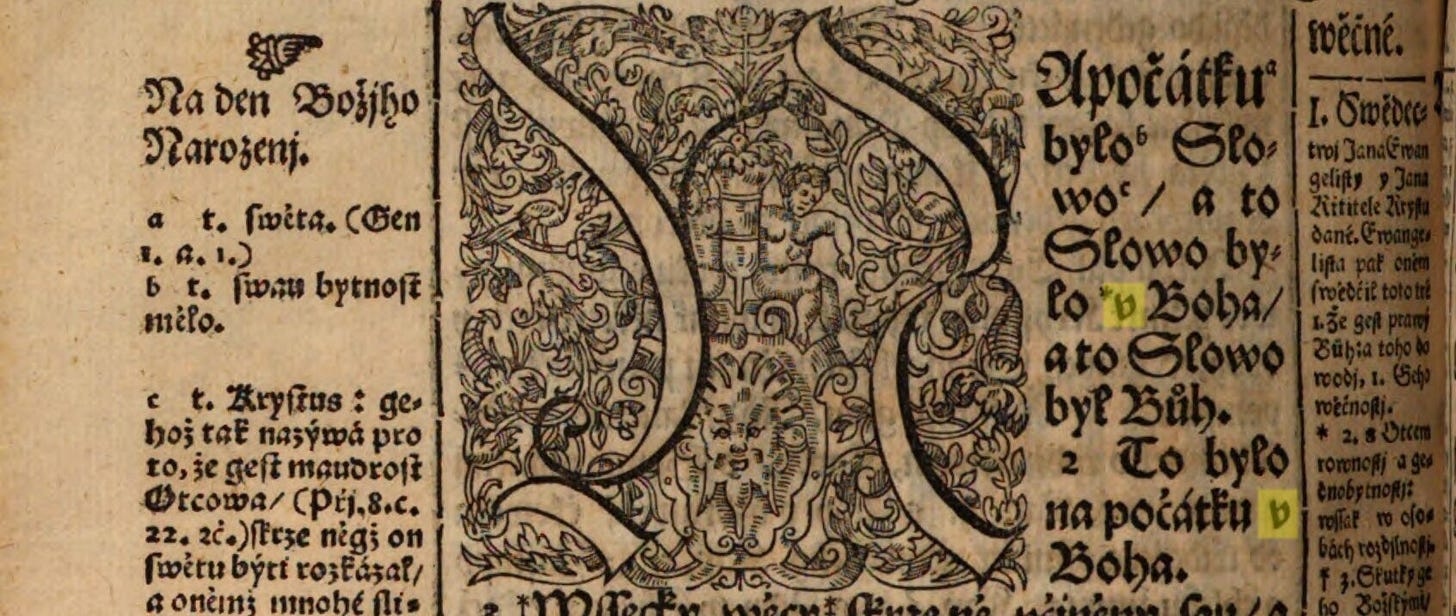 Na den Božjho
Narozenj.
a t. swěta. (Gen
1. a. 1.)
b t. swau bytnost
mělo.
c t. Krystus : ge-
hož tak nazýwá pro
to, že gest maudrost
Otcowa/ (Přj. 8. c.
22. 2c.) skrze něgž on
swětu býti rozkázal/
a oněmž mnohé sli-
NApočátkuᵃ
byloᵇ Slo-
woᶜ/ a to
Slowo by-
lo *v Boha/
a to Slowo
byl Bůh.
2 To bylo
na počátku v
Boha.
3 *Wssecky wěcy
wěčné.
I. Swědec-
twj Jana Ewan
gelisty y Jana
Křtitele Krystu
dané. Ewange-
lista pak oněm
swědčil toto tré
1. Že gest prawý
Bůh: a toho do
wodj, 1. Geho
wěčnostj.
* 2. s Otcem
rownostj a ge-
dnobytnostj:
wssak w oso-
bách rozdjlnostj.
† 3. Skutky ge
ho Božskými/